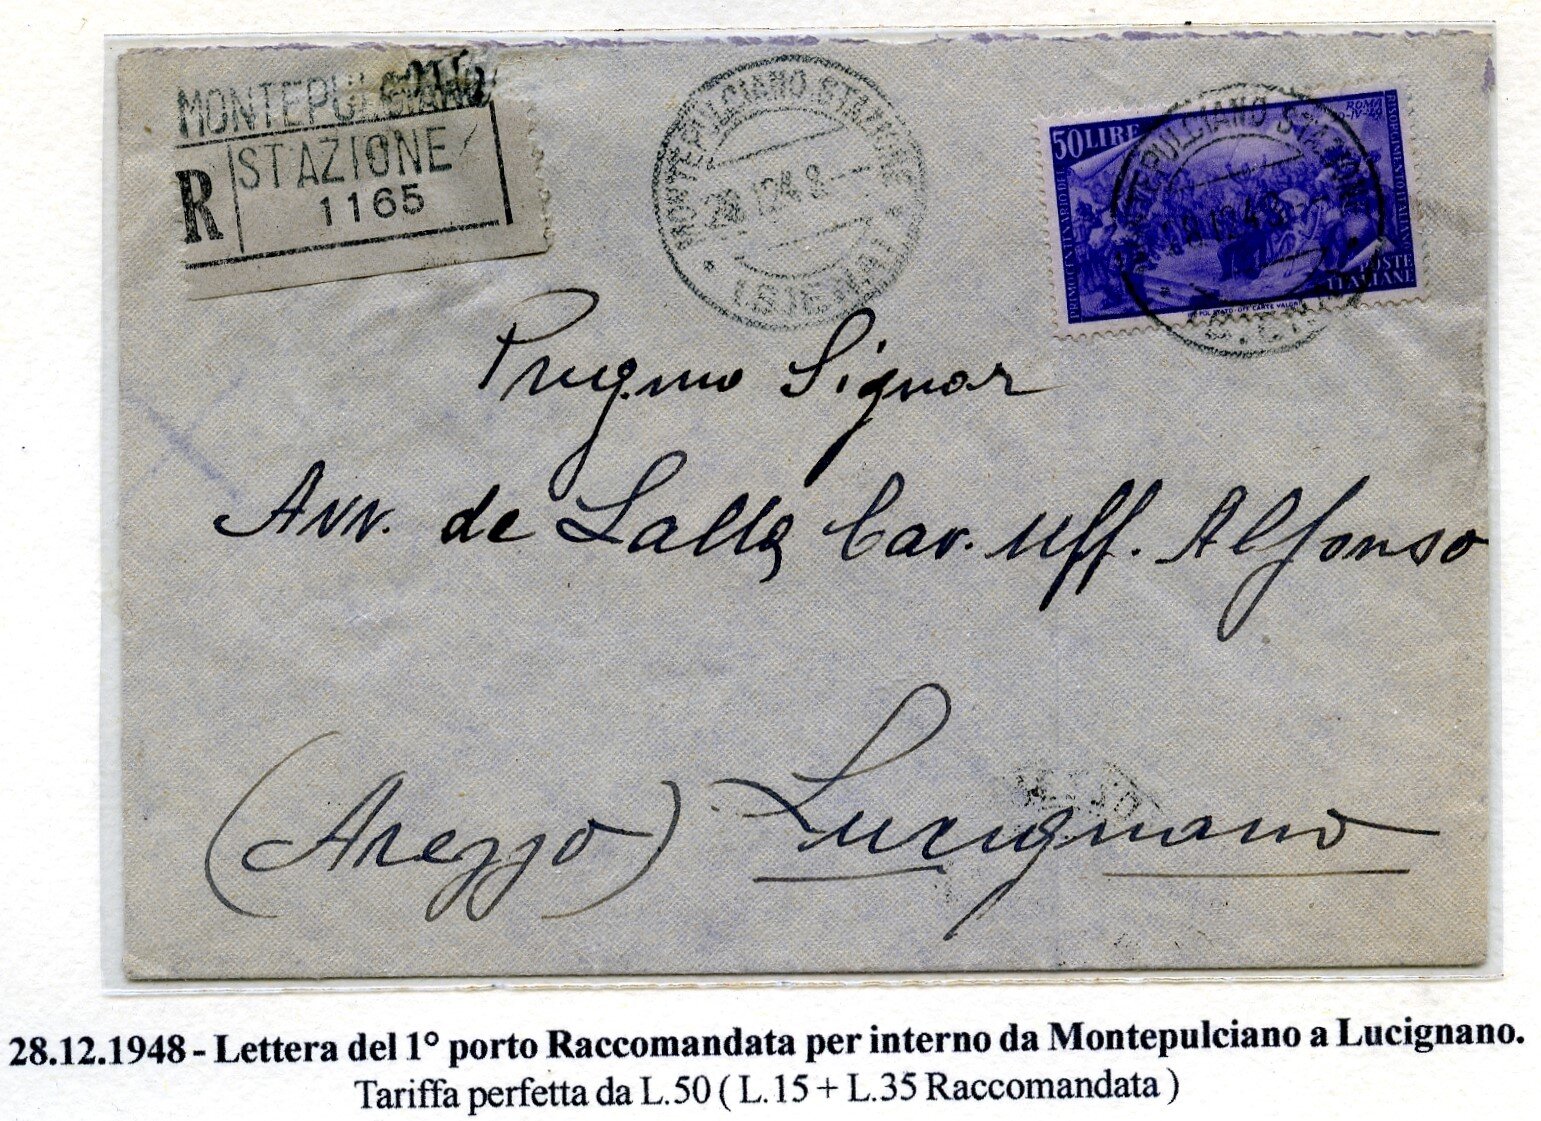 MONTEPULCIANO
R STAZIONE
1165
MONTEPULCIANO STAZIONE
28.12.48
* (SIENA) *
50 LIRE
ROMA
PRIMO CENTENARIO DEL RISORGIMENTO ITALIANO
POSTE ITALIANE
MONTEPULCIANO STAZIONE
28.12.48
Preg.mo Signor
Avv. de Lalla Cav. Uff. Alfonso
(Arezzo) Lucignano
28.12.1948 - Lettera del 1° porto Raccomandata per interno da Montepulciano a Lucignano.
Tariffa perfetta da L.50 ( L.15 + L.35 Raccomandata )